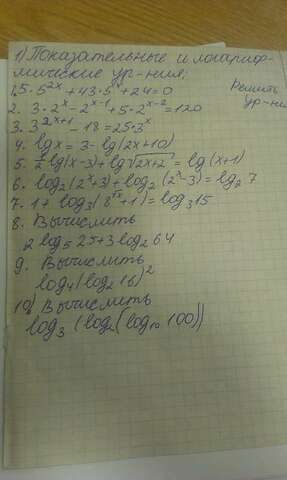 1) Показательные и логариф-
мические ур-ния;
Решить
ур-ни
1. 5·5^{2x}+43·5^x+24=0
2. 3·2^x-2^{x-1}+5·2^{x-2}=120
3. 3^{2x+1}-18=25·3^x
4. lgx=3-lg(2x+10)
5. 1/2 lg(x-3)+lg√2x+2=lg(x+1)
6. log₂(2^x+3)+log₂(2^x-3)=log₂7
7. 1+log₃(8^{√x}+1)=log₃15
8. Вычислить
2log₅25+3log₂64
9. Вычислить
log₄(log₂16)²
10) Вычислить
log₃(log₂(log₁₀100))